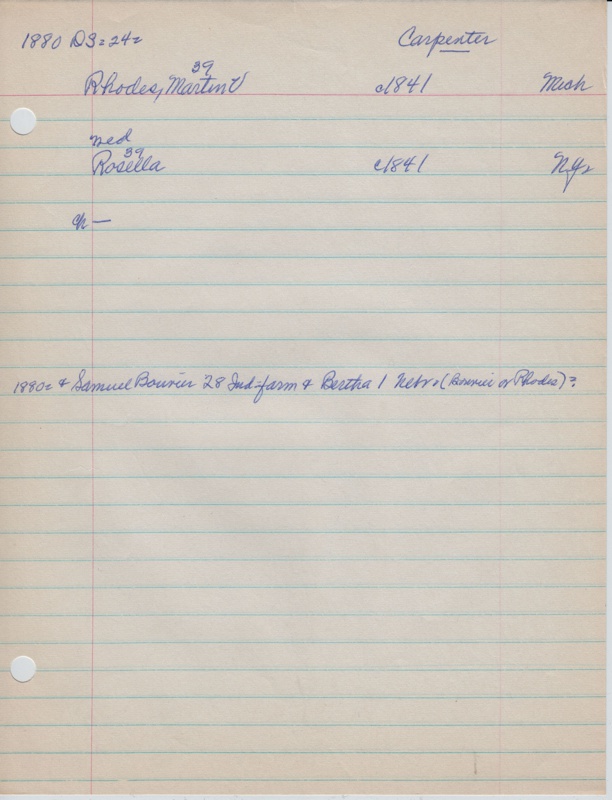 1880 D3=24= Carpenter
39
Rhodes, Martin V c1841 Mich
md
39
Rosella c1841 N.Y.
ch —
1880= & Samuel Bouvier 28 Ind=farm & Bertha 1 Nebr. (Bouvier or Rhodes)?